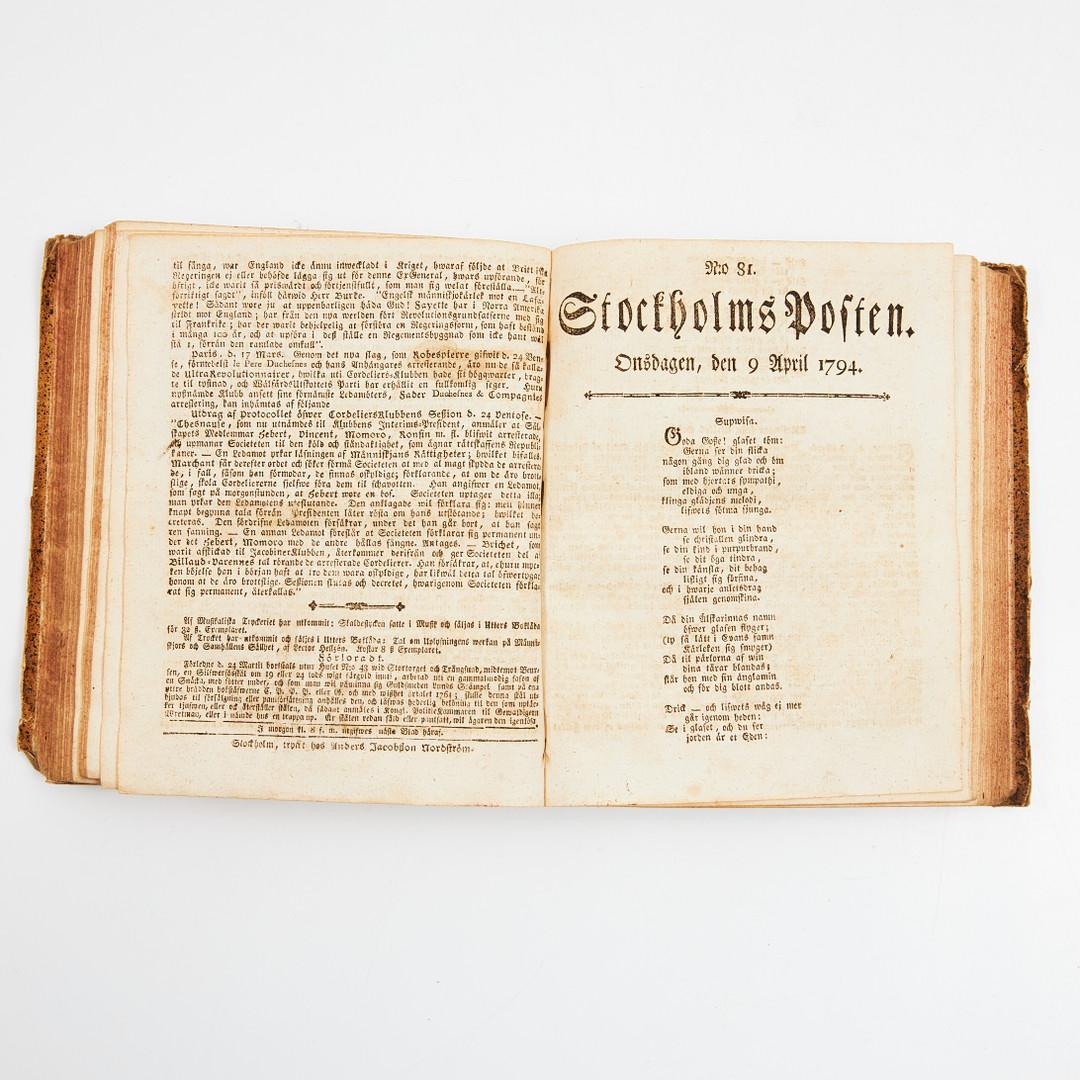 til fånga, war England icke ännu inweckladt i Kriget, hwaraf följde at Britt
Regeringen ej eller behöfde lägga sig ut för denne ExGeneral, hwars upförande, för
öfrigt, icke warit så priswärdt och förtjenstfullt, som man sig welat föreställa.
förrittigt sagdt", inföll härwid Herr Burke. "Engelsk människjokärlek mot en Lafa-
yette! Sådant wore ju at uppenbarligen håda Gud! Fayette har i Norra Amerika
stridt mot England; har från den nya werlden fört Revolutionsgrundsatserne med sig
til Frankrike; har der warit behjelpelig at förstöra en Regeringsform, som haft bestånd
i många 100 år, och at upföra i deß ställe en Regementsbyggnad som icke hant wäl
stå 1, förrän den ramlade omkull".
Paris. d. 17 Mars. Genom det nya slag, som Robespierre gifwit d. 24 Ven-
se, förmedelst le Pere Duchesnes och hans Anhängares arresterande, äro nu de så kalla-
de UltraRevolutionnairer, hwilka uti Cordeliers-Klubben hade sit högqwarter, brag-
te til tystnad, och WälfärdsUtskottets Parti har erhållit en fullkomlig seger. Huru
nyßnämde Klubb ansett sine förnämste Ledamöters, Fader Duchesnes & Compagnies
arrestering, kan inhämtas af följande
Utdrag af protocollet öfwer CordeliersKlubbens Session d. 24 Ventose. —
"Chesnaux, som nu utnämdes til Klubbens Interims-President, anmäler at Säl-
skapets Medlemmar Hebert, Vincent, Momoro, Ronsin m. fl. blifwit arresterade,
och upmanar Societeten til den köld och ståndaktighet, som ägnar rättskaffens Republi-
kaner. — En Ledamot yrkar läsningen af Människjans Rättigheter; hwilket bifalles.
Marchant får derefter ordet och söker förmå Societeten at med al magt skydda de arrestera-
de, i fall, såsom han förmodar, de finnas oskyldige; förklarande, at om de äro brott-
slige, skola Cordeliererne sjelfwe föra dem til schavotten. Han angifwer en Ledamot,
som sagt på morgonstunden, at Hebert wore en bof. Societeten uptager detta illa;
man yrkar den Ledamotens uteslutande. Den anklagade wil förklara sig; men hinner
knapt begynna tala förrän Presidenten låter rösta om hans utstötande; hwilket be-
creteras. Den fördrifne Ledamoten försäkrar, under det han går bort, at han sagt
ren sanning. — En annan Ledamot föreslår at Societeten förklarar sig permanent un-
der det Hebert, Momoro med de andre hållas fångne. Antages. — Brichet, som
warit affickad til JacobinerKlubben, återkommer derifrån och ger Societeten del af
Billaud-Varennes tal rörande de arresterade Cordelierer. Han försäkrar, at, ehuru myc-
ken böjelse han i början haft at tro dem wara oskyldige, har likwäl detta tal öfwertygat
honom at de äro brottslige. Sessionen slutas och decretet, hwarigenom Societeten förkla-
rat sig permanent, återkallas."
Af Musikaliska Tryckeriet har utkommit: Skaldestycken satte i Musik och säljas i Utters Boklåda
för 32 ß. Exemplaret.
Af Trycket har utkommit och säljes i Utters Boklåda: Tal om Uplysningens werkan på Männi-
skjors och Samhällens Sällhet, af Lector Hellzén. Kostar 8 ß Exemplaret.
Förlorade.
Förledne d. 24 Martii bortstals utur Huset N:o 43 wid Stortorget och Trångsund, midtemot Beur-
sen, en Silfwerßådskål om 19 eller 24 lods wigt förgyld inuti, arbetad uti en gammalmodig fason af
en Snäcka, med fötter under, och som man wil påminna sig Guldsmeden Lunds Stämpel samt på en
yttre brädden bokstäfwerne C. P. P. P. eller G. och med wißhet årtalet 1761; skulle denna skål ut-
bjudas til försäljning eller pantförsättning anhålles den, och låfwas hederlig belöning til den som uptäc-
ker tjufwen, eller och återställer skålen, då sådant anmäles i Kongl. PolitieKammaren til Gewaldigern
Wretman, eller i nämde hus en trappa up. Är skålen redan såld eller pantsatt, wil ägaren den igenlösa.
I morgon kl. 8 f. m. utgifwes nästa Blad häraf.
Stockholm, tryckt hos Anders Jacobsson Nordström.
N:o 81.
Stockholms Posten.
Onsdagen, den 9 April 1794.
Supwisa.
Goda Goße! glaset töm:
Gerna ser din flicka
någon gång dig glad och öm
ibland wänner dricka;
som med hjertats sympathi,
eldiga och unga,
klinga glädjens melodi,
lifwets sötma sjunga.
Gerna wil hon i din hand
se christallen glindra,
se din kind i purpurbrand,
se dit öga tindra,
se din känsla, dit behag
lifligt sig förfina,
och i hwarje anletsdrag
själen genomskina.
Då din älskarinnas namn
öfwer glasen flyger;
(ty så lätt i Evans famn
Kärleken sig smyger)
Då til pärlorna af win
dina tårar blandas;
står hon med sin änglamin
och för dig blott andas.
Drick — och lifwets wäg ej mer
går igenom heden:
Se i glaset, och du ser
jorden är et Eden: